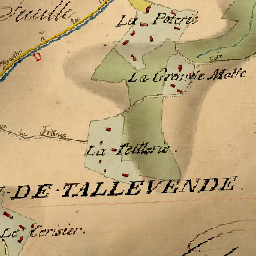 Feuille
La Poterie
La Grande Motte
La Teillerie.
DE-TALLEVENDE
Le Cerisier.